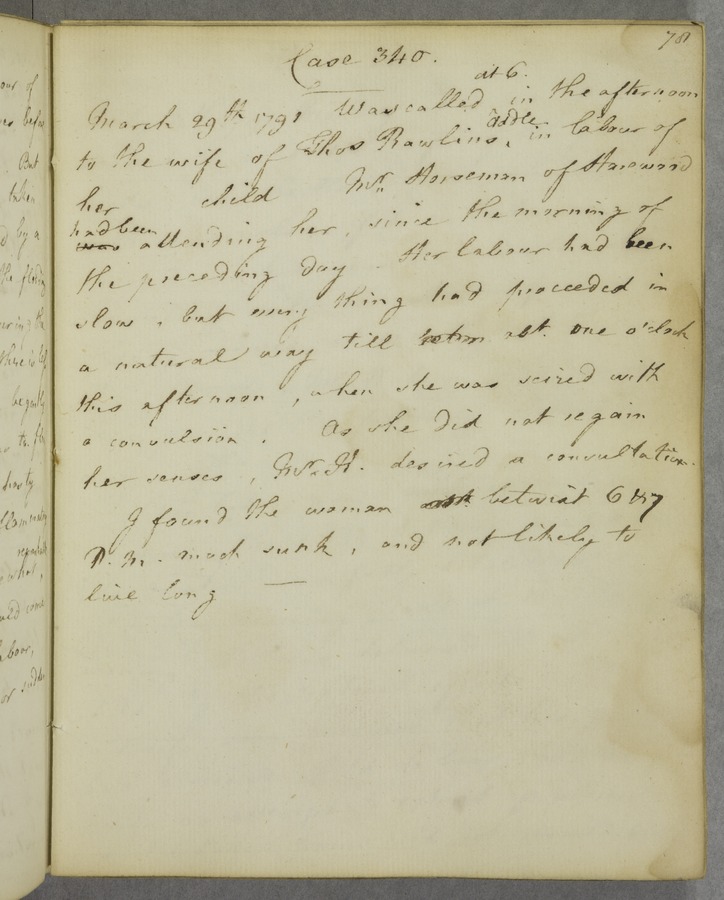 78
Case 340.
at 6.
March 29th 1791 Was called in the afternoon
Addle
to the wife of Thos Rawlins, in labour of
her child Mr. Horseman of Harewood
had been
was attending her, since the morning of
the preceding day. Her labour had been
slow; but every thing had proceeded in
a natural way till abt. one o'clock
this afternoon, when she was seized with
a convulsion. As she did not regain
her senses, Mr. H. desired a consultation.
I found the woman betwixt 6 & 7
P.M. much sunk, and not likely to
live long
our of
But
taken
d by a
the
begun
hasty
labour,